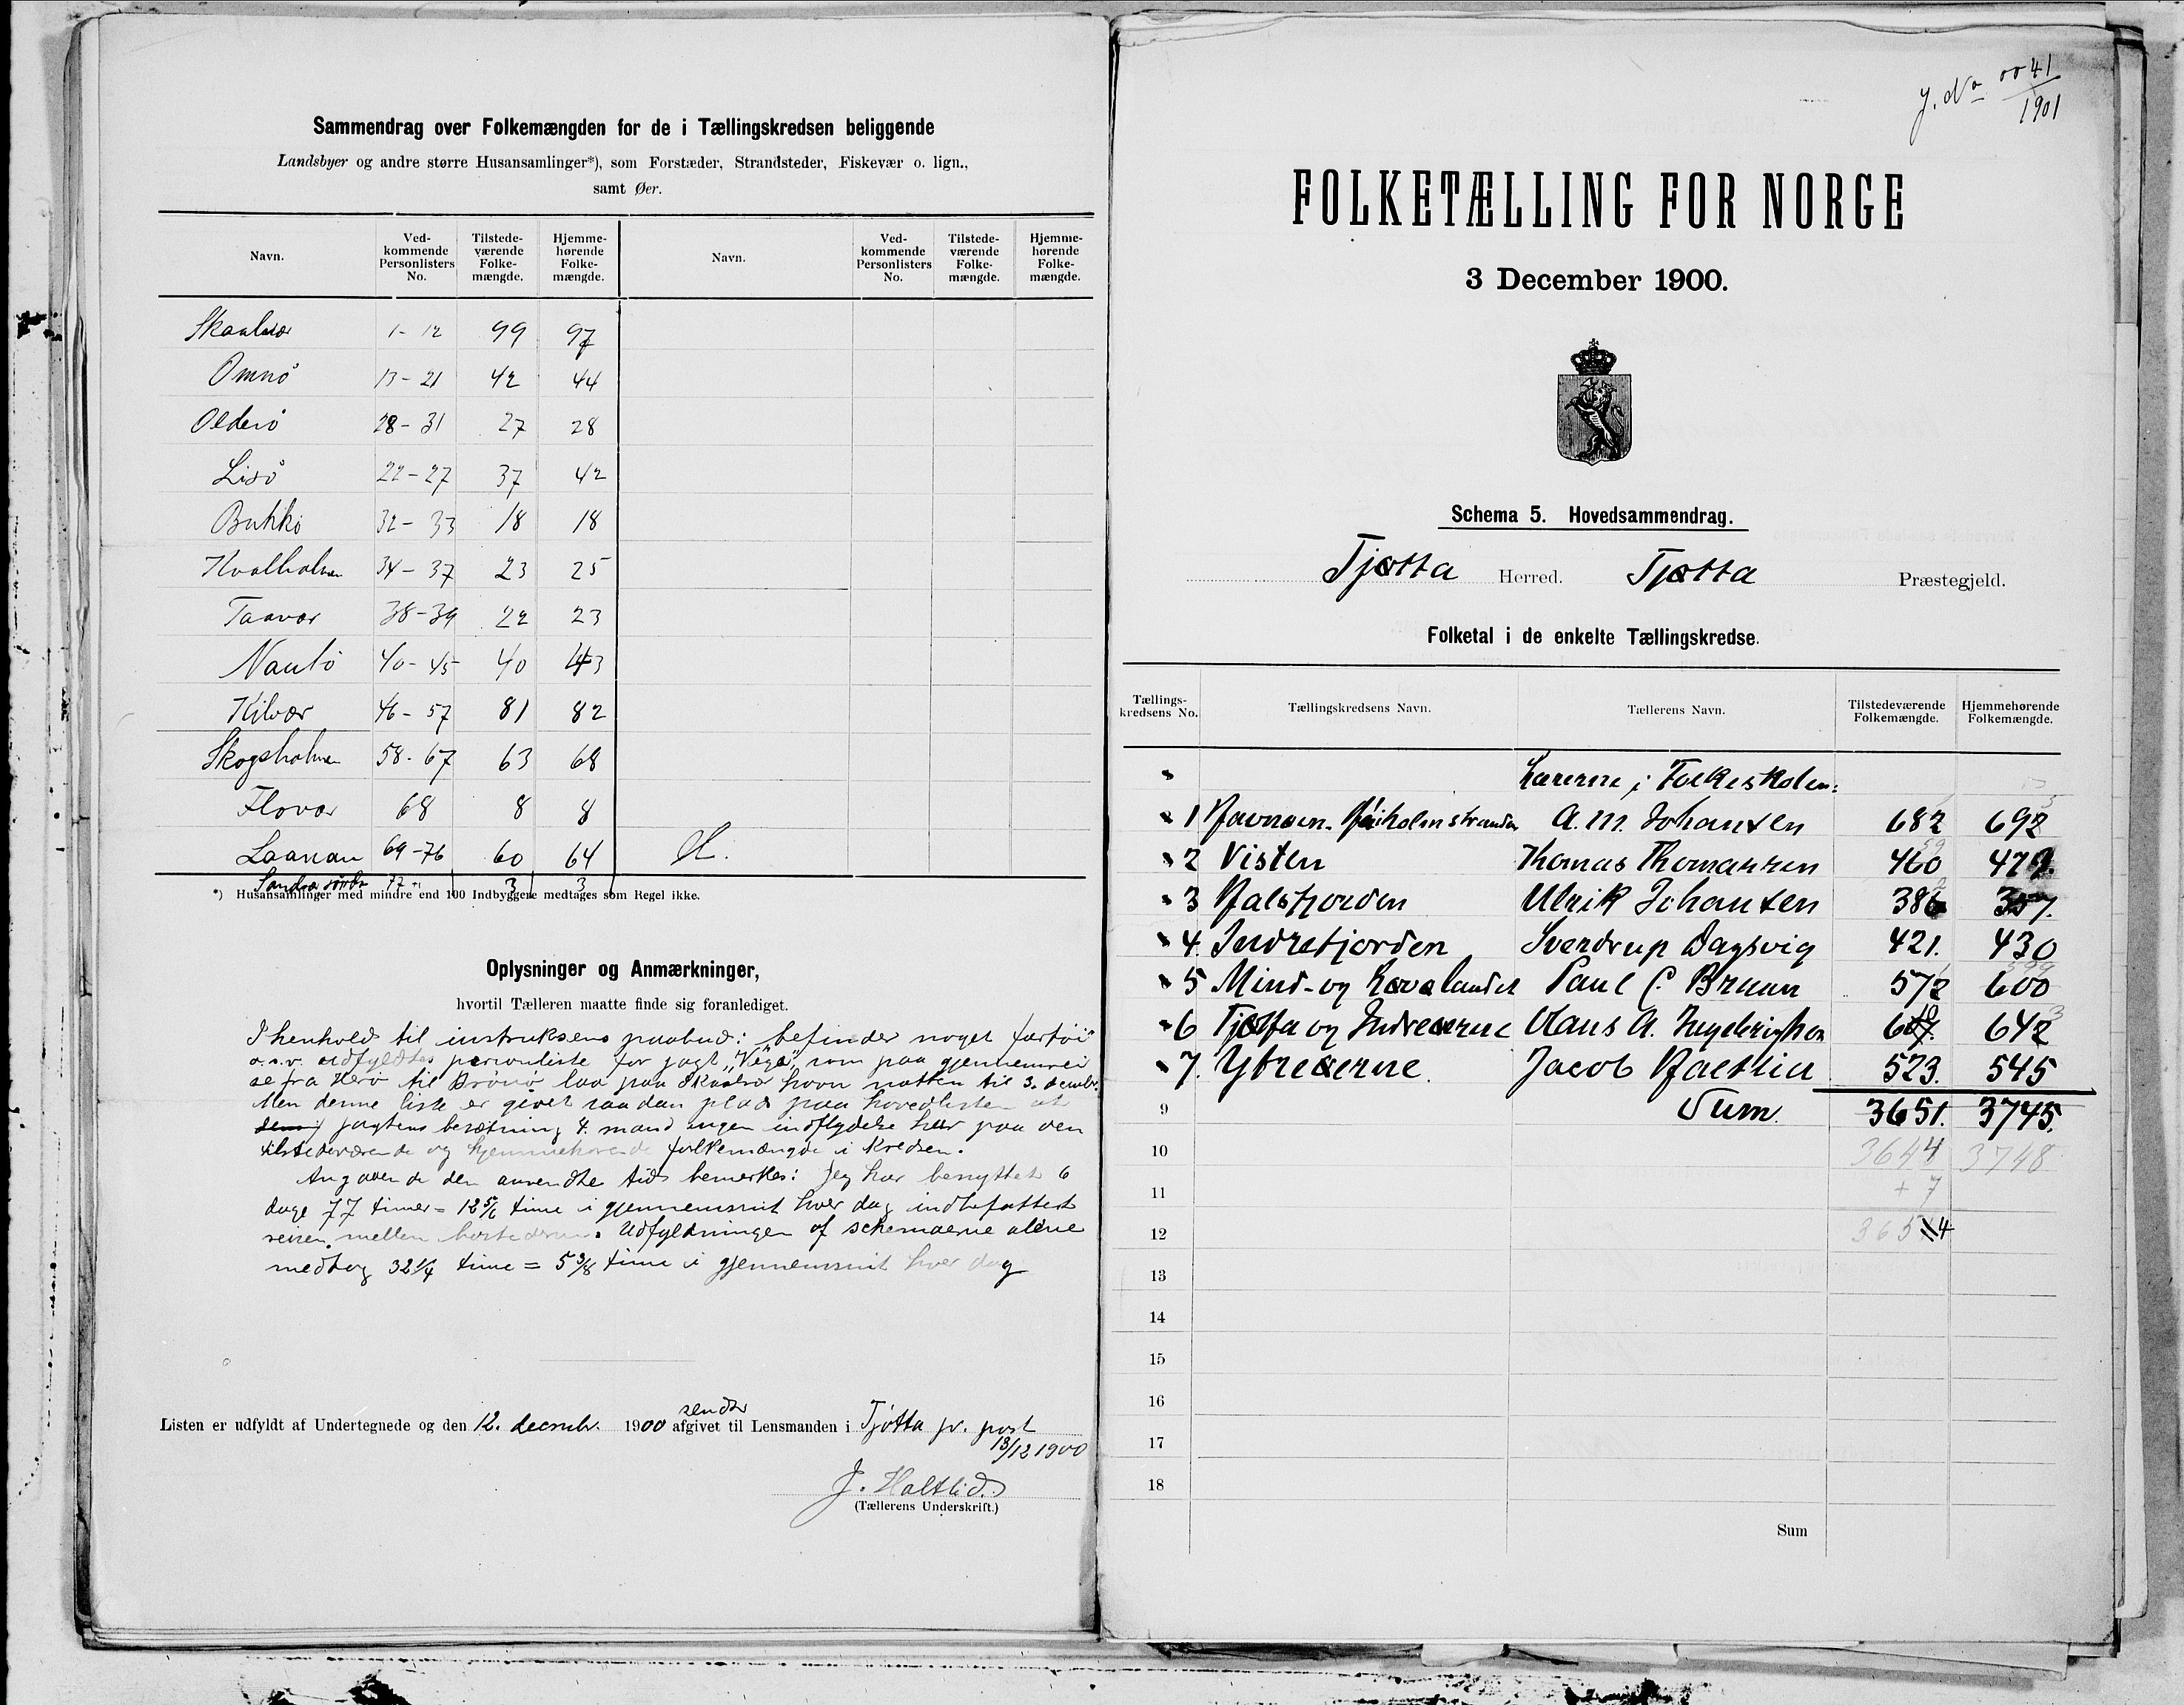 Sammendrag over Folkemængden for de i Tællingskredsen beliggende
Landsbyer og andre større Husansamlinger*), som Forstæder, Strandsteder, Fiskevær o. lign.,
samt Øer.
Navn. Ved-kommende Personlisters No. Tilstede-værende Folke-mængde. Hjemme-hørende Folke-mængde. Navn. Ved-kommende Personlisters No. Tilstede-værende Folke-mængde. Hjemme-hørende Folke-mængde.
Skaalvær 1-12 99 97
Omnø 13-21 42 44
Olderø 28-31 27 28
Lisø 22-27 37 42
Bukkø 32-33 18 18
Hvalholmen 34-37 23 25
Taavær 38-39 22 23
Nautø 40-45 40 43
Kilvær 46-57 81 82
Skogsholmen 58-67 63 68
Flovær 68 8 8
Laanan 69-76 60 64
77 3 3
*) Husansamlinger med mindre end 100 Indbyggere medtages som Regel ikke.
Oplysninger og Anmærkninger,
hvortil Tælleren maatte finde sig foranlediget.
I henhold til instruksens paabud: befinder noget fartøi
o.s.v. udfyldtes personliste for jagt "Vega" som paa gjennemrei
se fra Herø til Brønø laa paa Skaalvær havn natten til 3. decmbr.
Men denne liste er givet saadan plads paa hovedlisten at
jagtens besætning 4 mand ingen indflydelse har paa den
tilstedeværende og hjemmehørende folkemængde i kredsen.
Angaaende den anvendte tid bemerkes: Jeg har benyttet 6
dage 77 timer = 12 5/6 time i gjennemsnit hver dag indbefattet
reisen mellem bostederne. Udfyldningen af schemaerne alene
medtog 32 1/4 time = 5 3/8 time i gjennemsnit hver dag
sendt
Listen er udfyldt af Undertegnede og den 12. decmbr. 1900 afgivet til Lensmanden i Tjøtta pr. post
13/12 1900
J. Haltlid.
(Tællerens Underskrift.)
J. No 0041/1901
FOLKETÆLLING FOR NORGE
3 December 1900.
Schema 5. Hovedsammendrag.
Tjøtta Herred. Tjøtta Præstegjeld.
Folketal i de enkelte Tællingskredse.
Tællings-kredsens No. Tællingskredsens Navn. Tællerens Navn. Tilstedeværende Folkemængde. Hjemmehørende Folkemængde.
Lærerne i Folkeskolen:
1 A. M. Johansen 682 692
2 Visten Thomas Thomassen 460 479
3 Halsfjorden Ulrik Johansen 386 357.
4. Indrefjorden Sverdrup Dagsvig 421. 430
5 Mind- og Rørølandet Paul C. Bruun 572 600
6 Tjøtta og Indreøerne Olaus A. 607. 642
7. Ytreøerne. Jacob Haltlid 523. 545
9 Sum. 3651. 3745.
10 3644 3748
11 + 7
12 3651 4
13
14
15
16
17
18
Sum